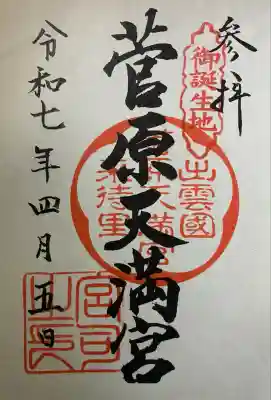 參拝
御誕生地
出雲國
菅原天満宮
来待里
菅原天満宮
令和七年四月五日
宮司之印